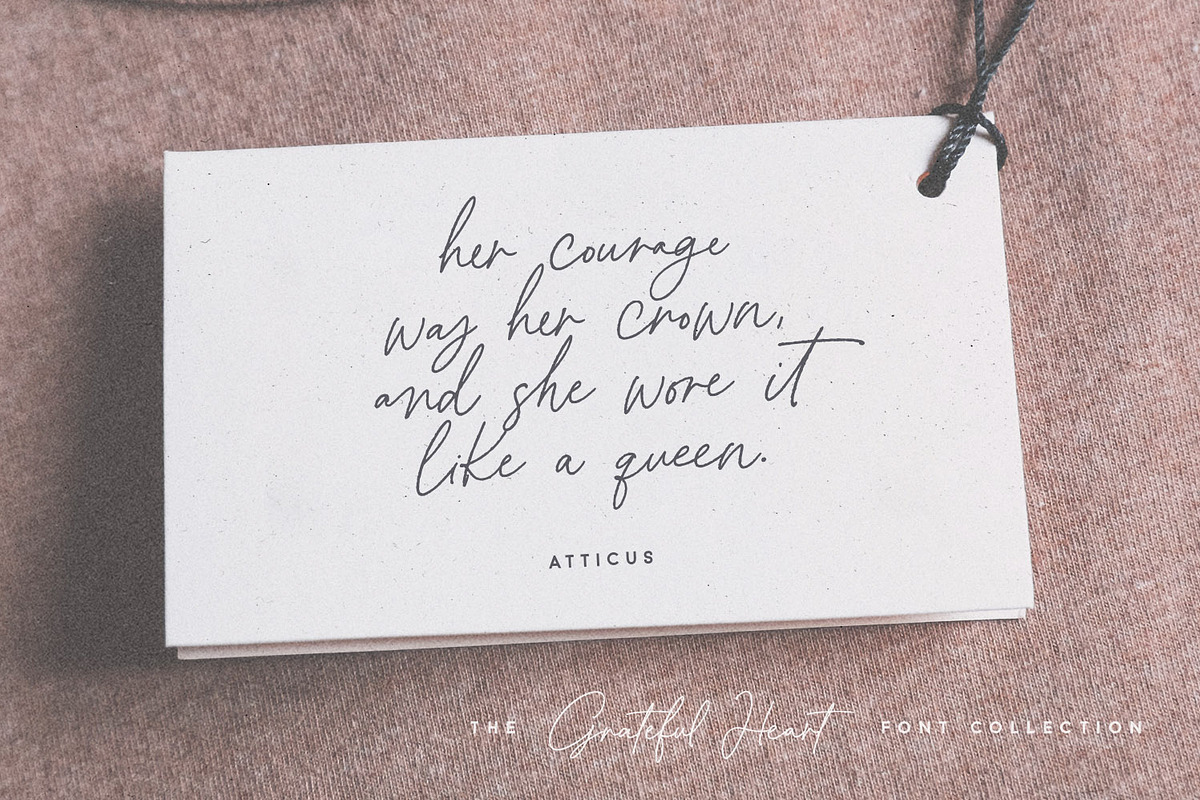 her courage
was her crown,
and she wore it
like a queen.
ATTICUS
THE Grateful Heart FONT COLLECTION